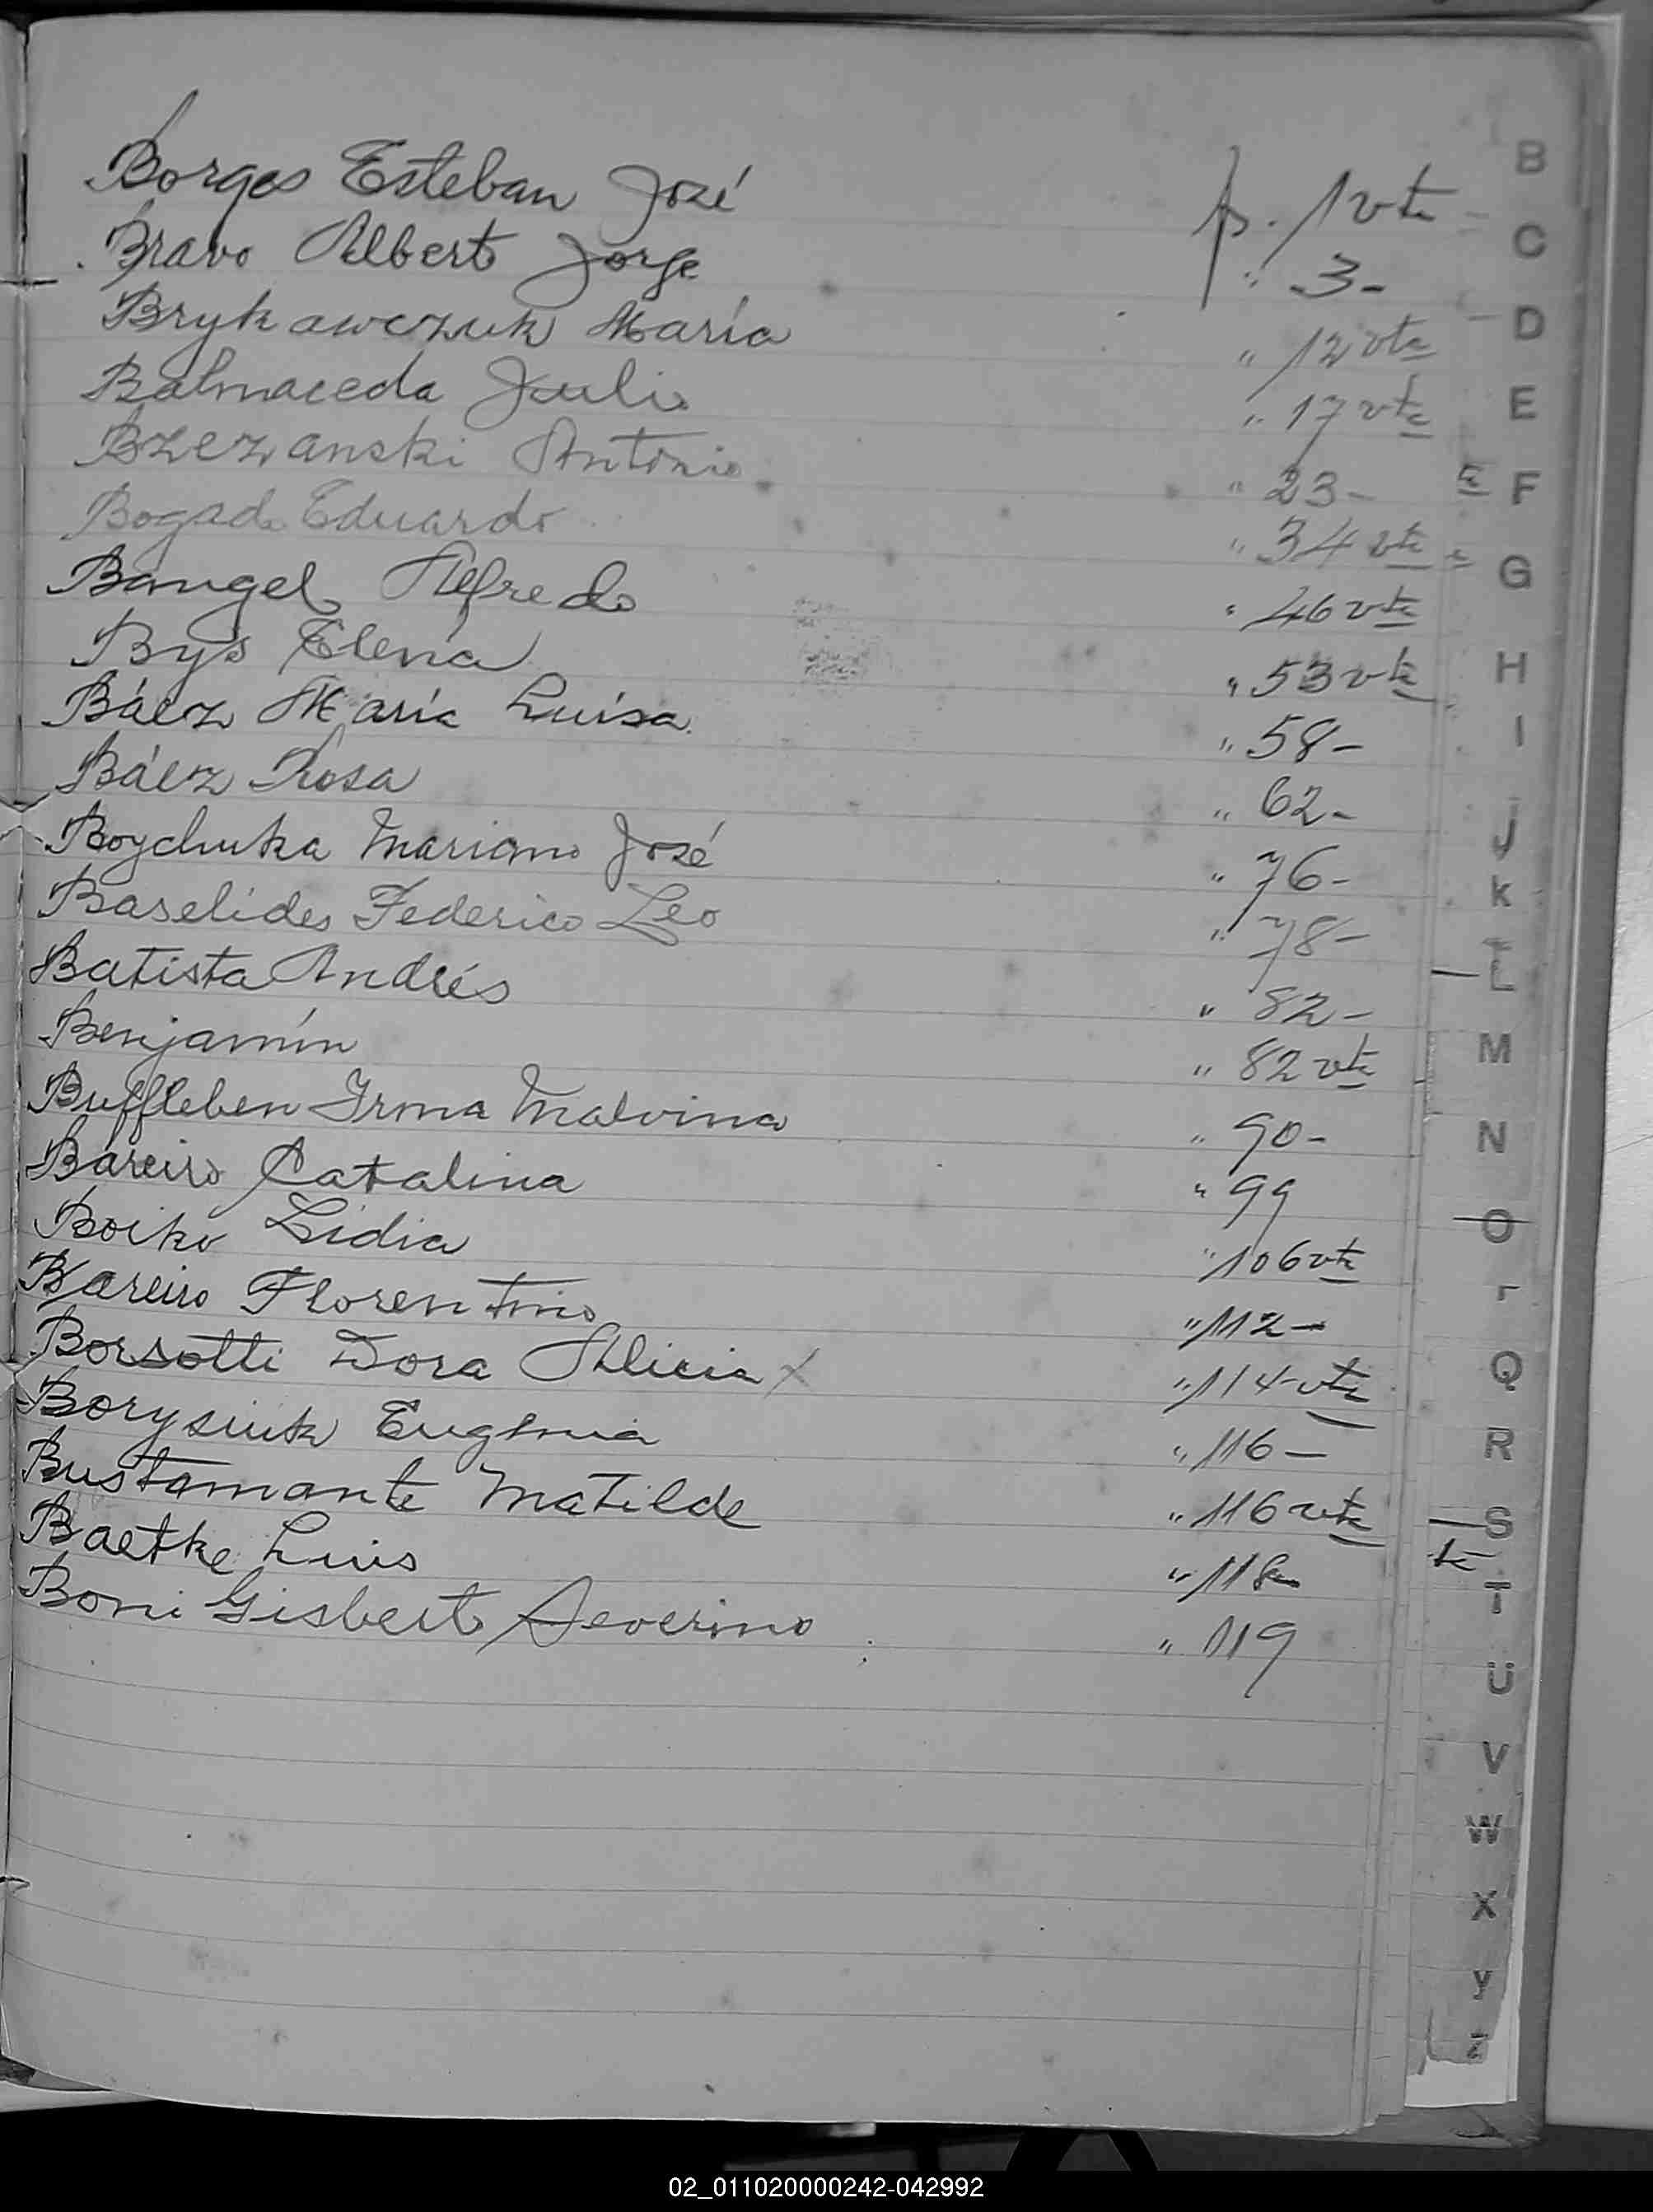 Borges Esteban José p. 1 vta
Bravo Alberto Jorge " 3-
Brykawczuk María " 12 vta
Balmaceda Julio " 17 vta
Bzezanski Antonio " 23-
Bogado Eduardo " 34 vta
Bangel Alfredo " 46 vta
Bys Elena " 53 vta
Báez María Luisa " 58-
Báez Rosa " 62-
Boychuka Mariano José " 76-
Baselides Federico Leo " 78-
Batista Andrés " 82-
Benjamín " 82 vta
Buffleben Irma Malvina " 90-
Bareiro Catalina " 99
Boiko Lidia " 106 vta
Bareiro Florentino " 112-
Borsotti Dora Alicia X " 114 vta
Borysiuk Eugenia " 116-
Bustamante Matilde " 116 vta
Baetke Luis " 118-
Boni Gisberto Severino " 119
B
C
D
E
F
G
H
I
J
K
L
M
N
O
Q
R
S
T
U
V
W
X
Y
Z
02_011020000242-042992